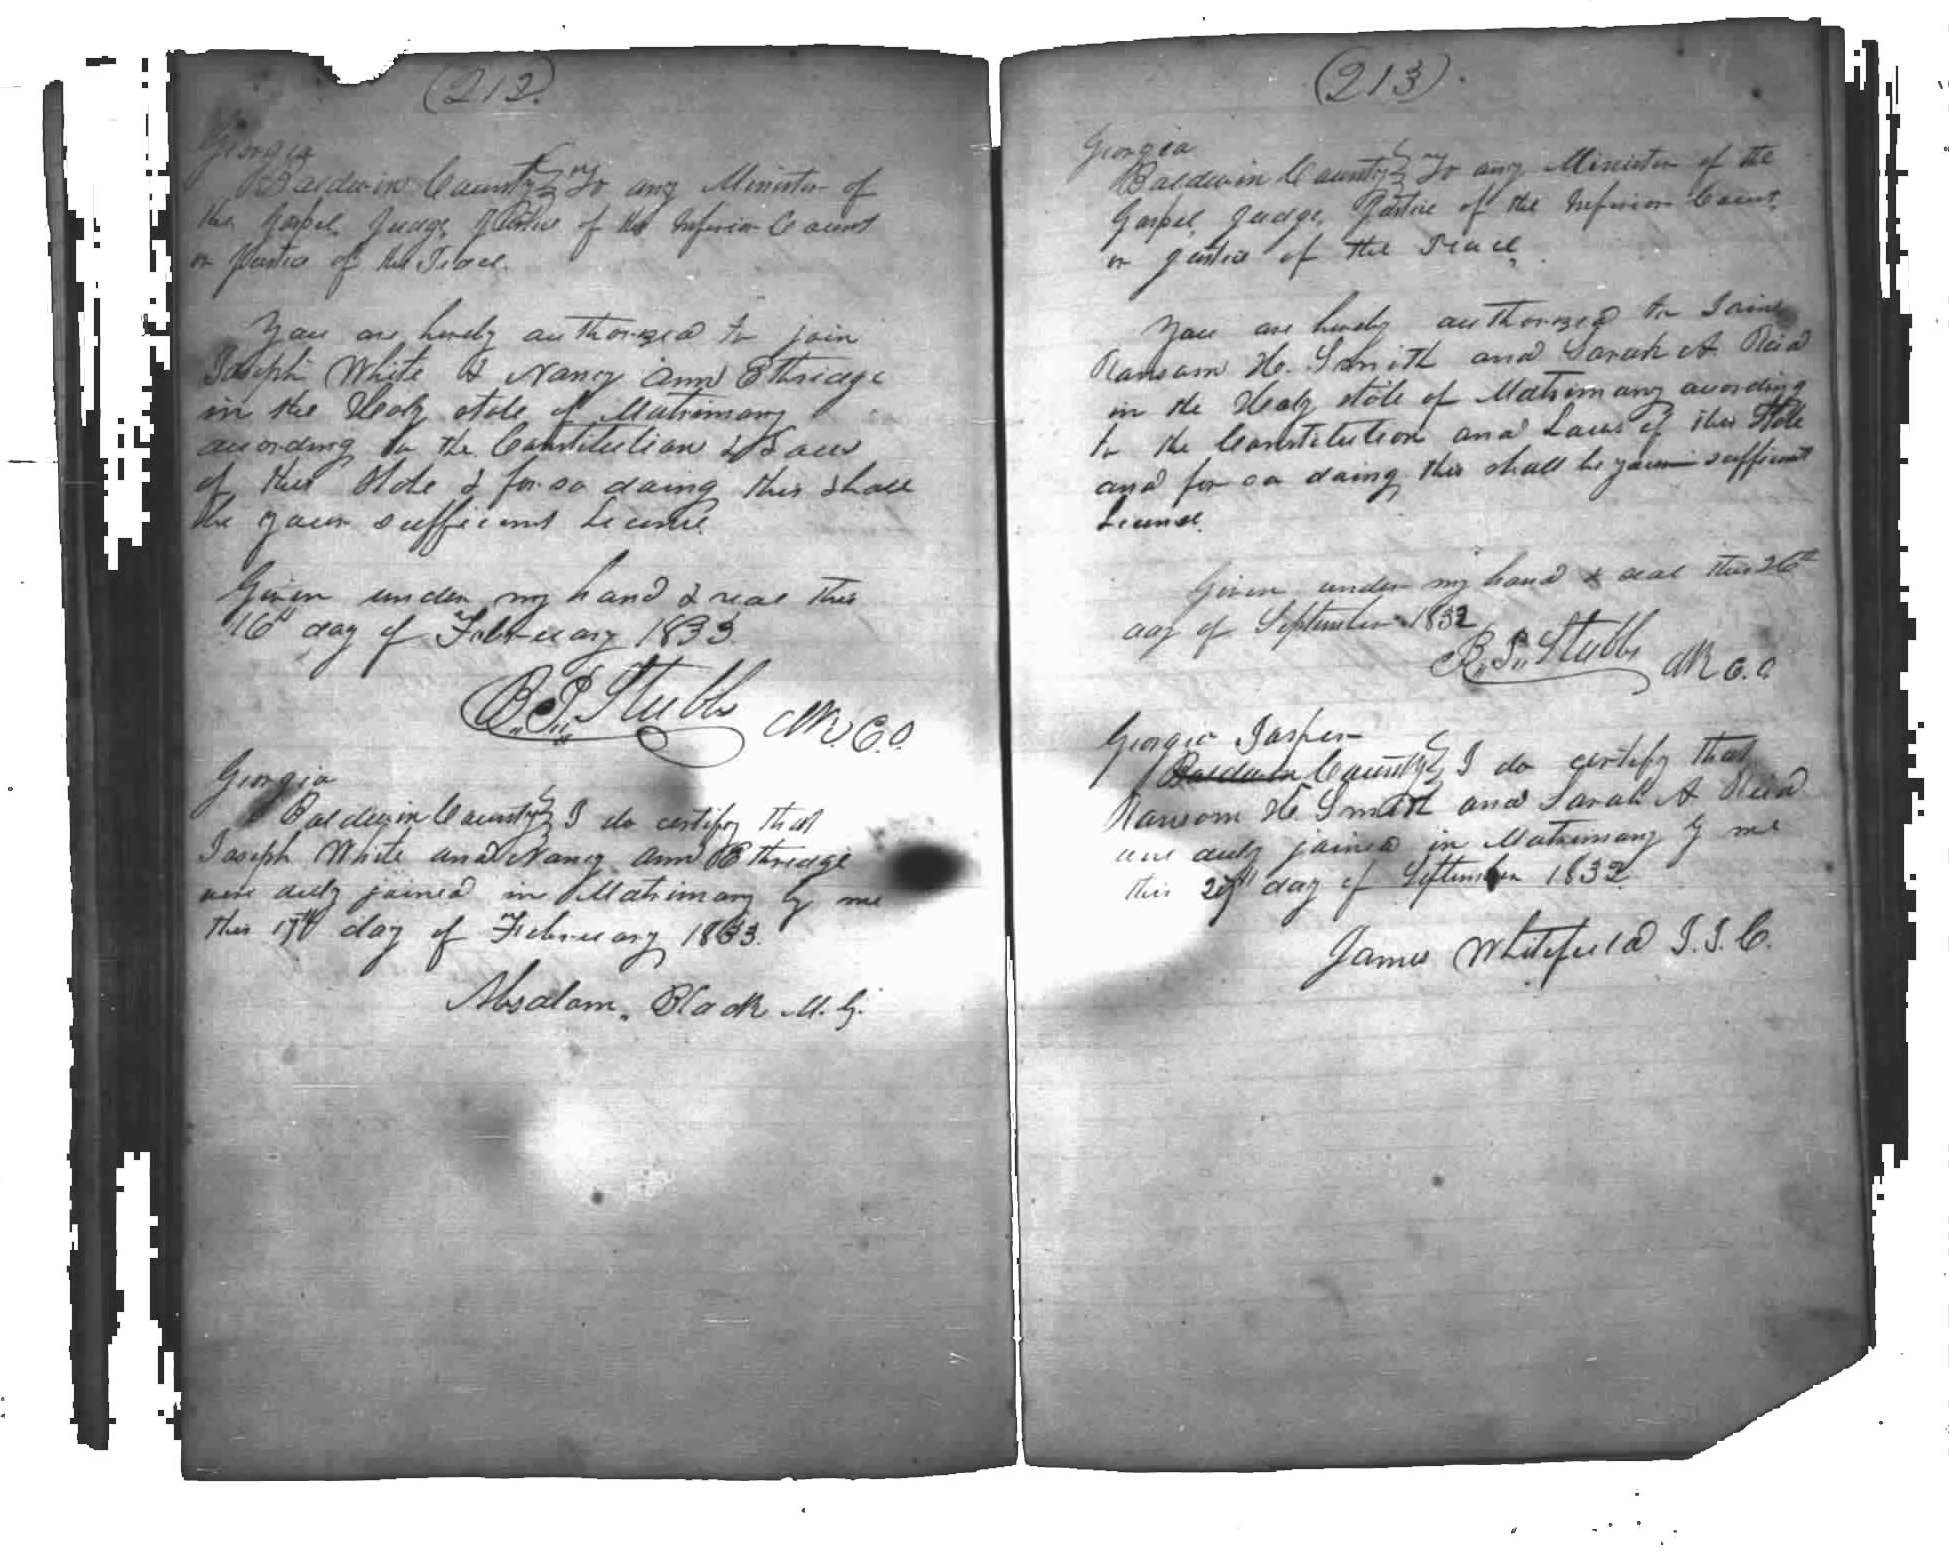 (212)
Georgia
Baldwin County } To any Minister of
the Gospel, Judge, Justice of the Inferior Court
or Justice of the Peace.
You are hereby authorized to join
Joseph White & Nancy Ann Ethridge
in the Holy state of Matrimony
according to the Constitution & Laws
of this State & for so doing this shall
be your sufficient License.
Given under my hand & seal this
16th day of February 1833.
B. P. Stubbs Clk. C. O.
Georgia
Baldwin County } I do certify that
Joseph White and Nancy Ann Ethridge
were duly joined in Matrimony by me
this 17th day of February 1833.
Absalom Black M. G.
(213).
Georgia
Baldwin County } To any Minister of the
Gospel, Judge, Justice of the Inferior Court,
or Justice of the Peace,
You are hereby authorized to Join
Ransom H. Smith and Sarah A. Reid
in the Holy state of Matrimony according
to the Constitution and Laws of this State
and for so doing this shall be your sufficient
License.
Given under my hand & seal this 26th
day of September 1832
B. P. Stubbs Clk C. O
Georgia Jasper
Baldwin County } I do certify that
Ransom H Smith and Sarah A Reid
were duly joined in Matrimony by me
this day of September 1832
James Whitefield J. I. C.